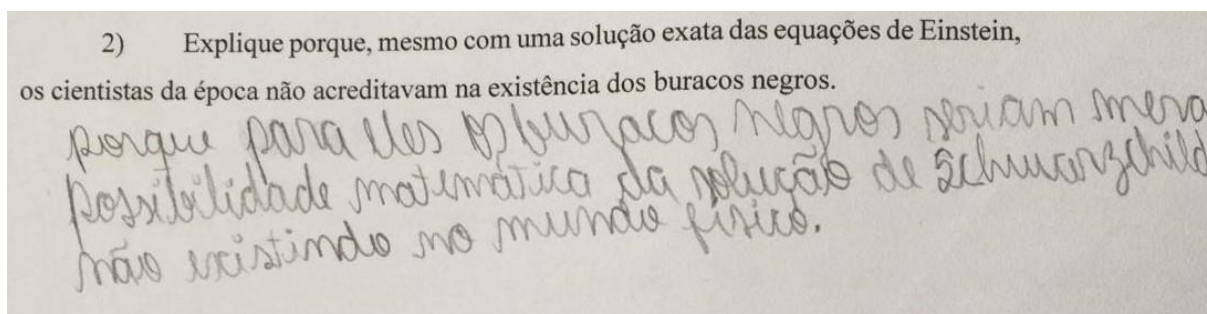 2) Explique porque, mesmo com uma solução exata das equações de Einstein,
os cientistas da época não acreditavam na existência dos buracos negros.
porque para eles os buracos negros seriam mera
possibilidade matemática da solução de Schwarzschild
não existindo no mundo físico.